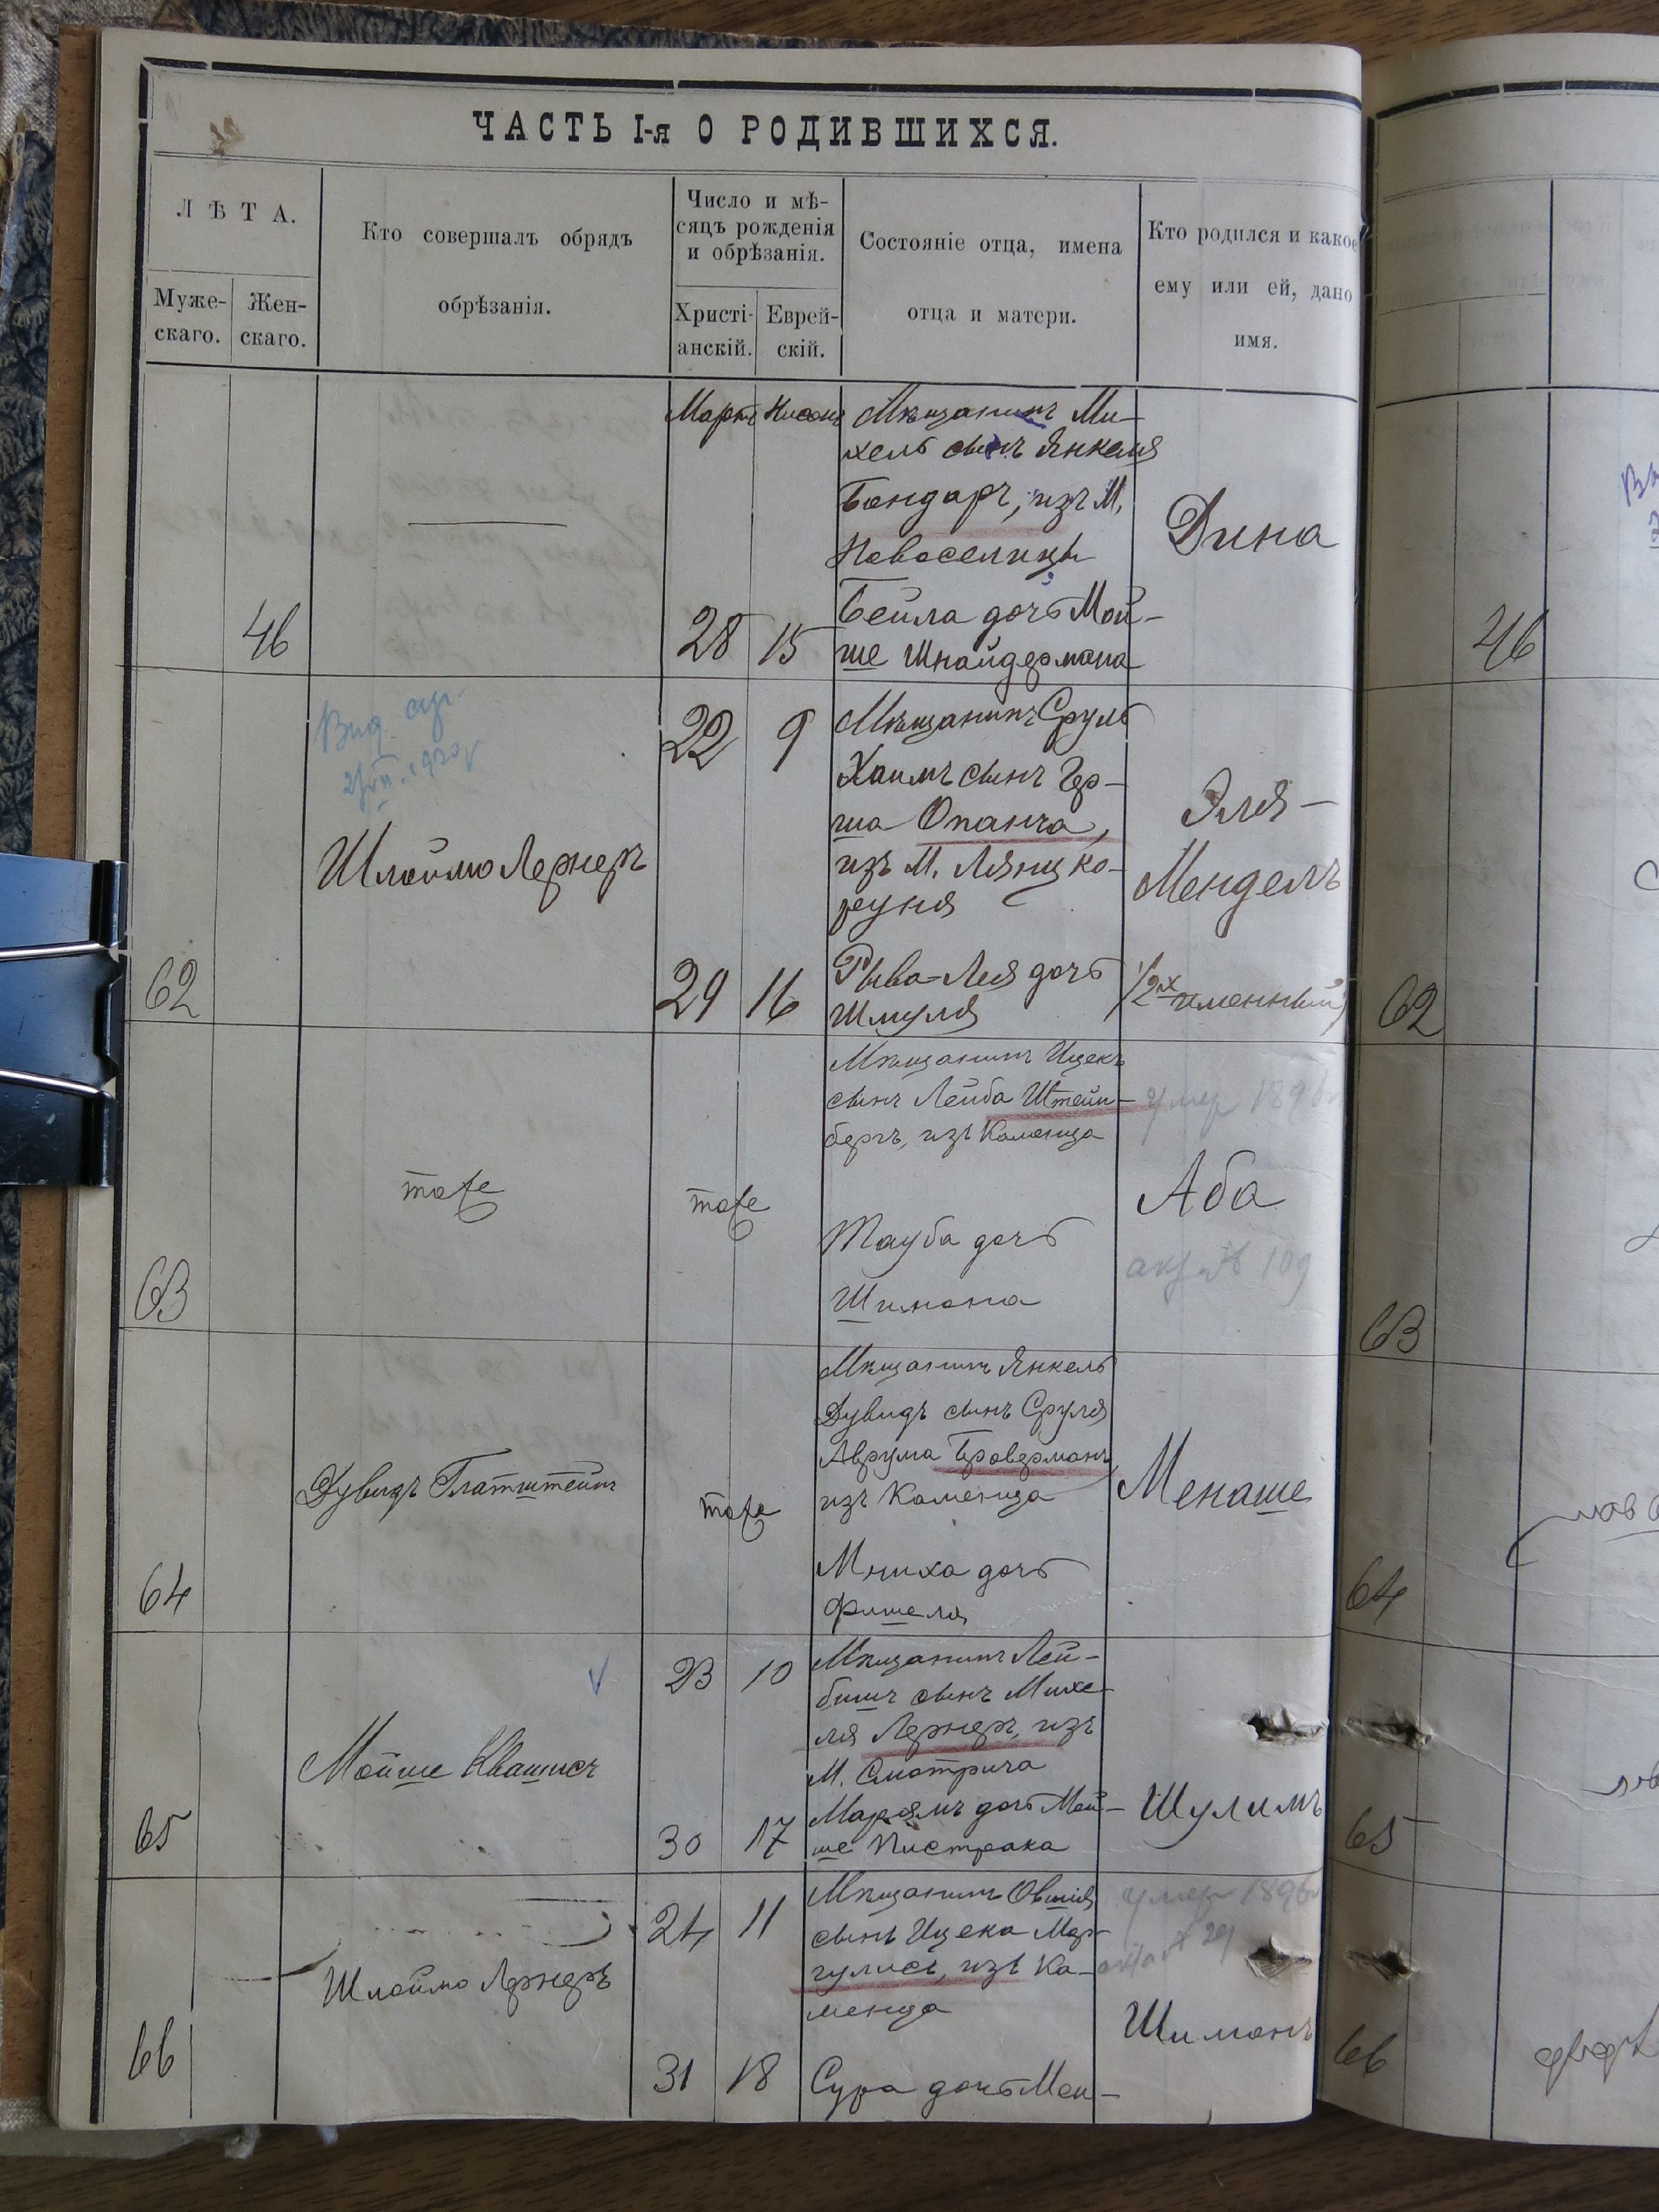 ЧАСТЬ I-я О РОДИВШИХСЯ.
ЛѢТА.
Муже-
скаго.
Жен-
скаго.
Кто совершалъ обрядъ
обрѣзанія.
Число и мѣ-
сяцъ рожденія
и обрѣзанія.
Христі-
анскій.
Еврей-
скій.
Состояніе отца, имена
отца и матери.
Кто родился и какое
ему или ей, дано
имя.
46
Мартъ Нисонъ
28 15
Мѣщанинъ Ми-
хель сынъ Янкеля
Бондаръ, изъ М.
Новоселицы
Бейла дочь Мой-
ше Шнайдермана
Дина
46
62
Шлоймо Лернеръ
22 9
29 16
Мѣщанинъ Сруль
Хаимъ сынъ Гер-
ша Опанча,
изъ М. Лянцко-
руня
Рыва-Лея дочь
Шмуля
Эля-
Мендель
(2х именный)
62
63
тоже
тоже
Мѣщанинъ Ицекъ
сынъ Лейба Штейн-
бергъ, изъ Каменца
Тауба дочь
Шимона
умер 1896
Аба
акт № 109
63
64
Дувидъ Глатштейнъ
тоже
Мѣщанинъ Янкель
Дувидъ сынъ Сруля
Аврума Броверманъ
изъ Каменца
Мниха дочь
Фишеля
Менаше
64
65
Мойше Квашисъ
23 10
30 17
Мѣщанинъ Лей-
бишъ сынъ Михе-
ля Лернеръ, изъ
М. Смотрича
Маріямъ дочь Мой-
ше Пистрака
Шулимъ
65
66
Шлоймо Лернеръ
24 11
31 18
Мѣщанинъ Овшія
сынъ Ицека Мар-
гулисъ, изъ Ка-
менца
Сура дочь Мен-
умер 1896
29
Шимонъ
66